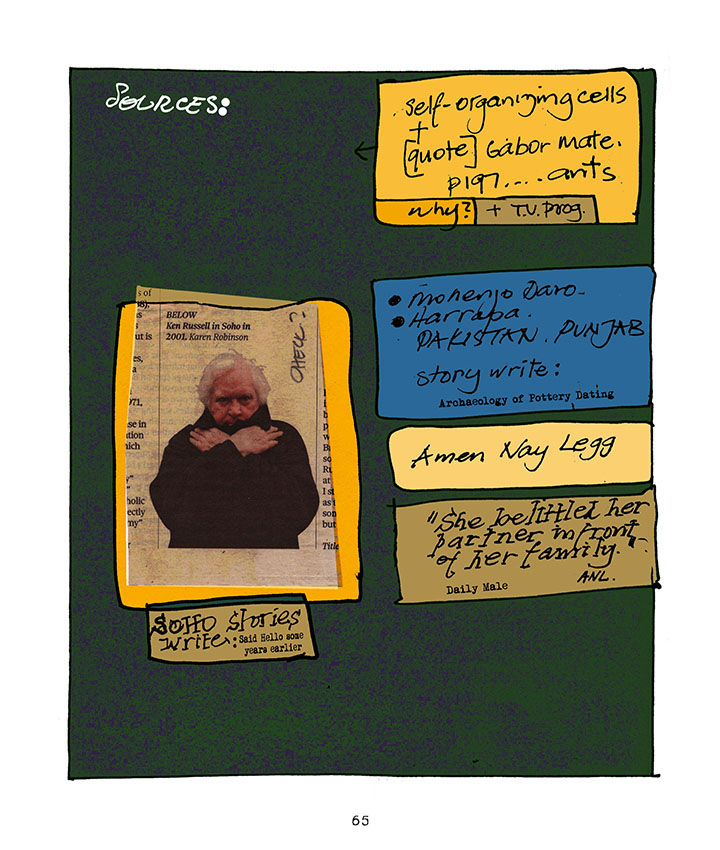 SOURCES:
self-organizing cells
+
[quote] Gabor Mate.
p197.... ants
why? + T.V. Prog.
s of
BELOW
Ken Russell in Soho in
2001. Karen Robinson
CHECK?
ut is
es,
a
971,
se in
ation
hich
y"
holic
ectly
my"
Title
• Mohenjo Daro-
• Harrapa.
PAKISTAN. PUNJAB
story write:
Archaeology of Pottery Dating
Amen Nay Legg
"She belittled her
partner in front
of her family."
ANL.
Daily Male
SOHO Stories
write: Said Hello some
years earlier
65